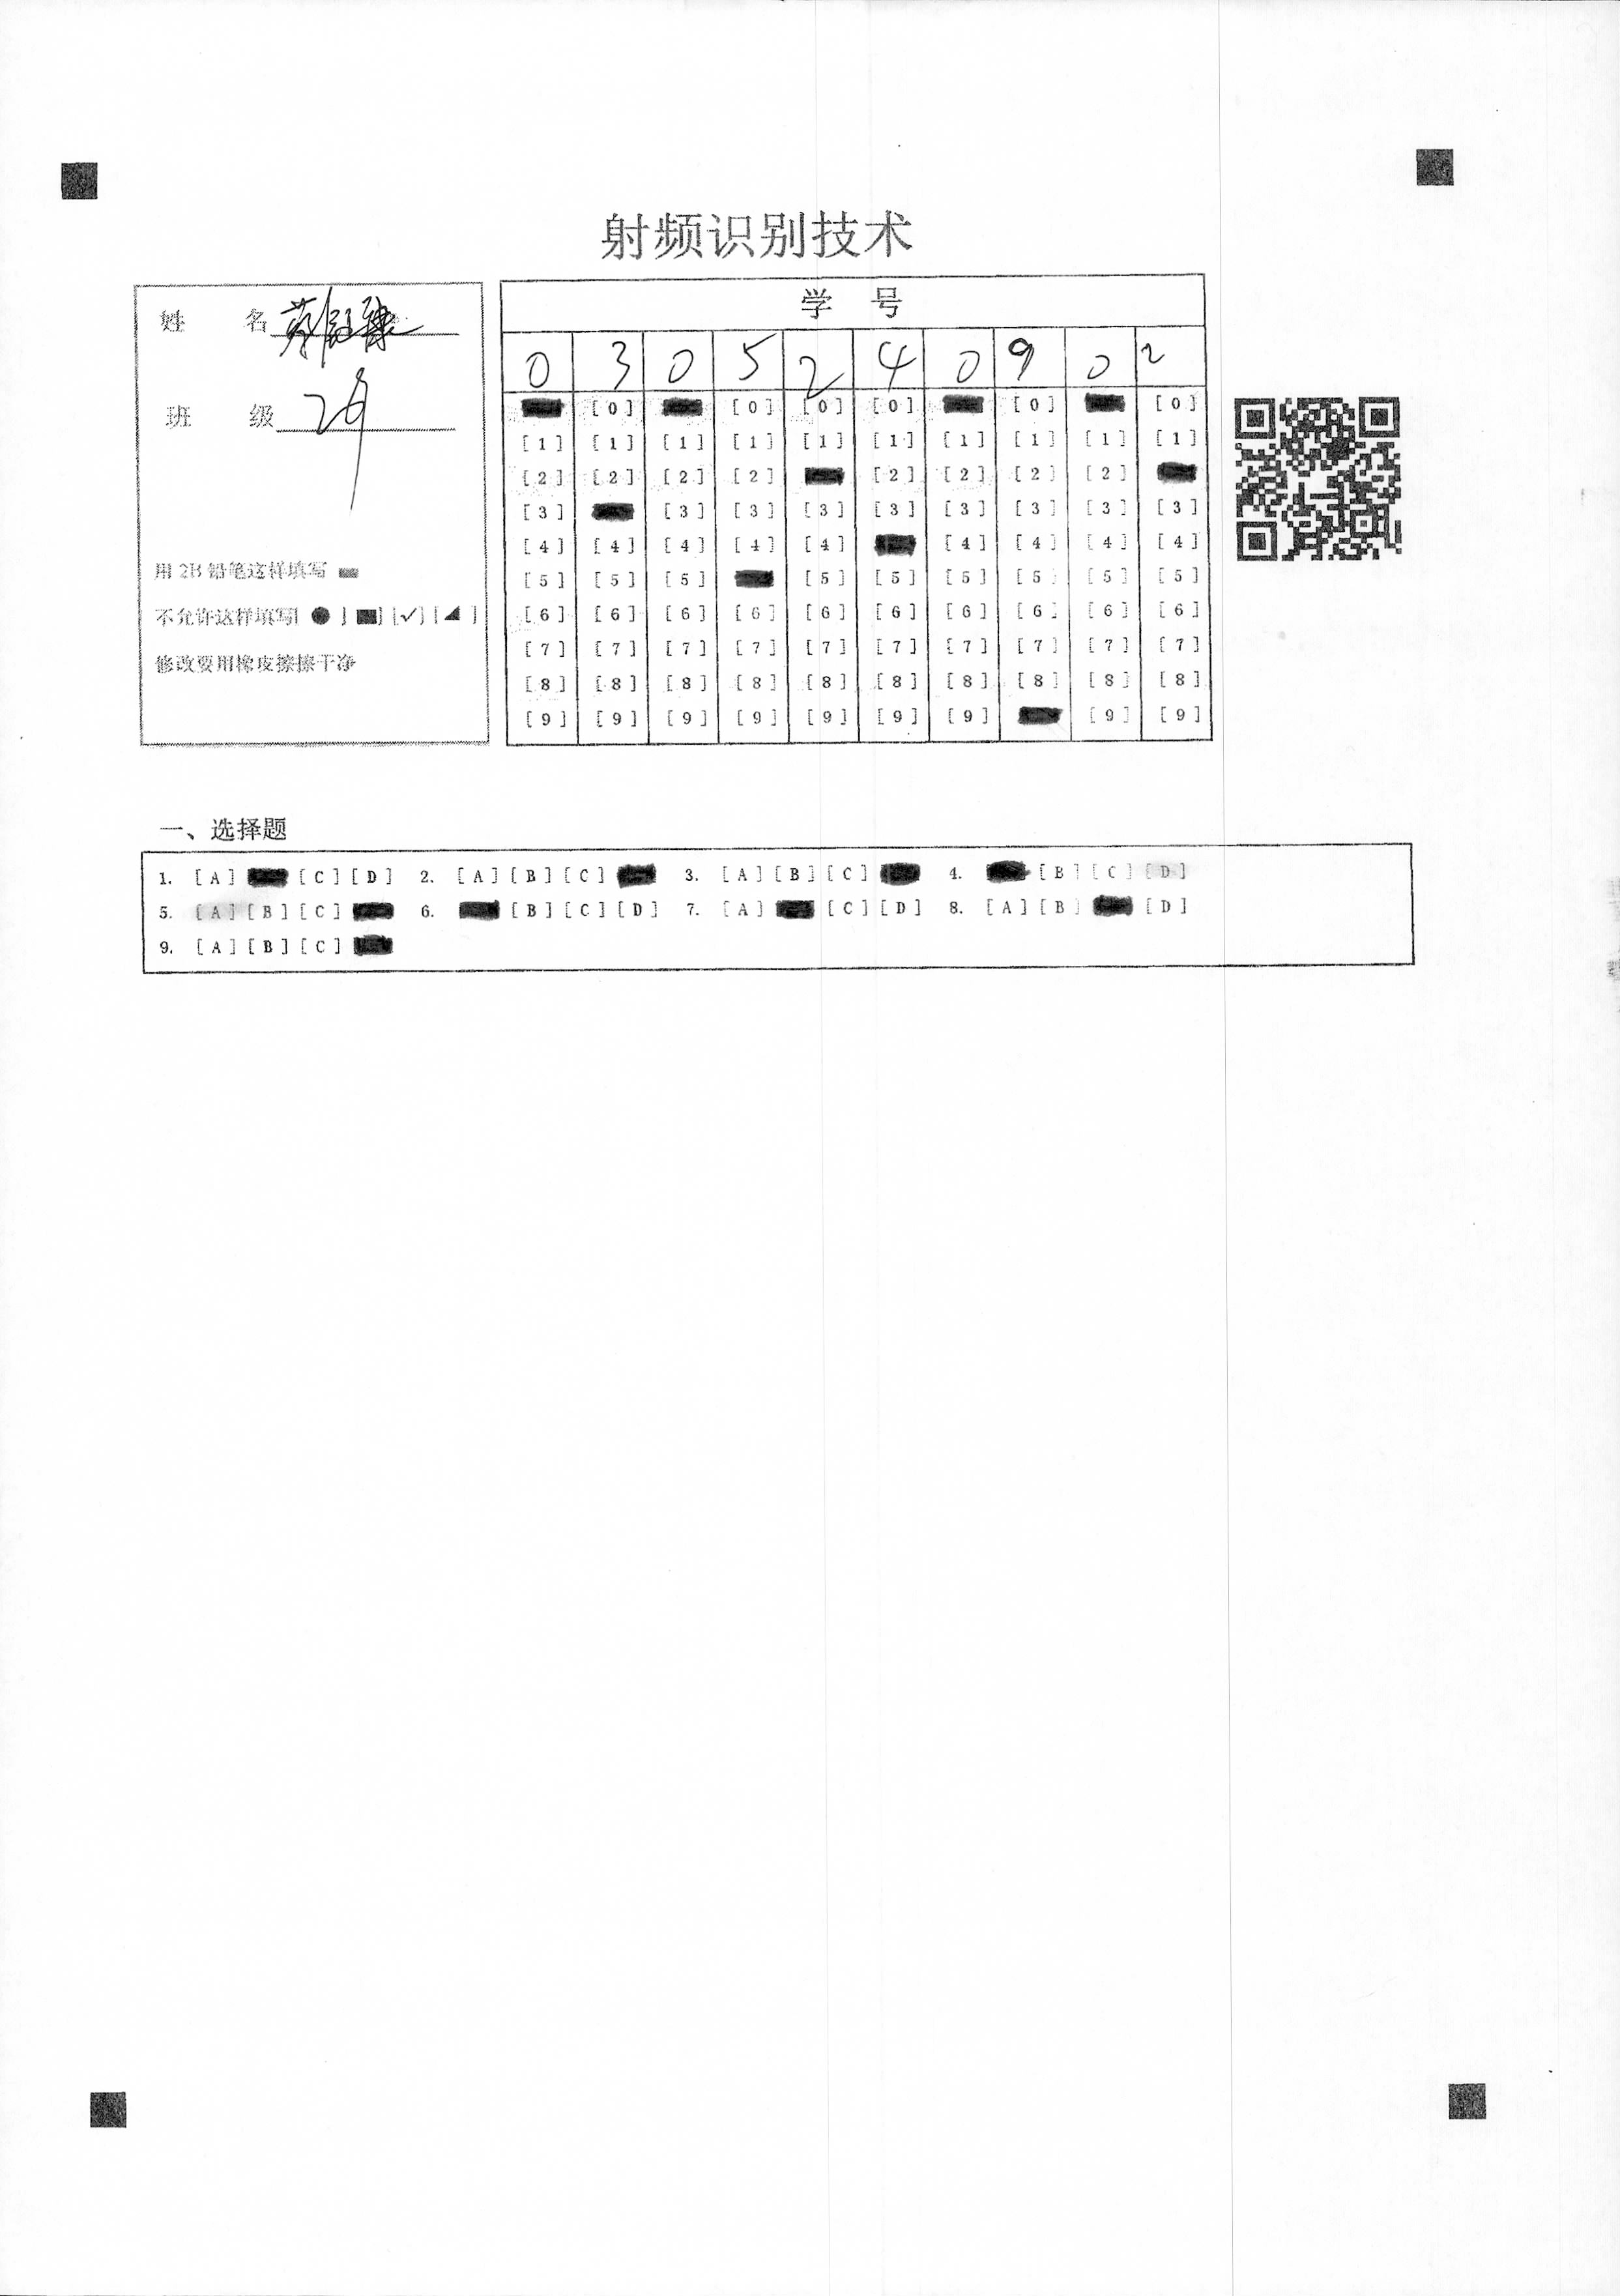 射频识别技术
姓 名
班 级 29
用 2B 铅笔这样填写
不允许这样填写[ ● ] [■] [✓] [◢ ]
修改要用橡皮擦擦干净
学 号
0 3 0 5 2 4 0 9 0 2
[0] [0] [0] [0] [0] [0]
[1] [1] [1] [1] [1] [1] [1] [1] [1] [1]
[2] [2] [2] [2] [2] [2] [2] [2]
[3] [3] [3] [3] [3] [3] [3] [3] [3]
[4] [4] [4] [4] [4] [4] [4] [4] [4]
[5] [5] [5] [5] [5] [5] [5] [5] [5]
[6] [6] [6] [6] [6] [6] [6] [6] [6] [6]
[7] [7] [7] [7] [7] [7] [7] [7] [7] [7]
[8] [8] [8] [8] [8] [8] [8] [8] [8] [8]
[9] [9] [9] [9] [9] [9] [9] [9] [9]
一、选择题
1. [A] [C] [D] 2. [A] [B] [C] 3. [A] [B] [C] 4. [B] [C] [D]
5. [A] [B] [C] 6. [B] [C] [D] 7. [A] [C] [D] 8. [A] [B] [D]
9. [A] [B] [C]